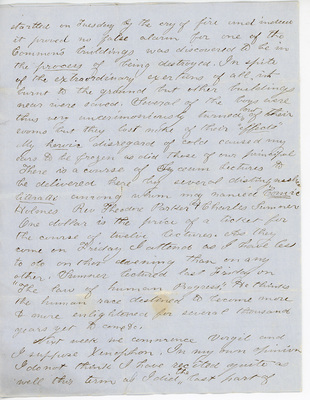 startled on Tuesday by the cry of fire and indeed
it proved no false alarm for one of the
Commons buildings was discovered to be in
the process of being destroyed. In spite
of the extraordinary exertions of all, it
burnt to the ground but other buildings
near were saved. Several of the boys were
thus very unceremoniously turned out of their
rooms but they lost none of their "effects"
My heroic disregard of cold caused my
ears to be frozen as did those of our principal
There is a course of Lyceum lectures to
be delivered here by several distinguished
among whom are named
Holmes Rev Theodore Parker & Charles Sumner
One dollar is the price of a ticket for
the course of twelve lectures. As they
come on Friday I attend as I have less
to do on that evening than on any
other. Sumner lectured last Friday on
"The law of human Progress," & he thinks
the human race destined to become more
& more enlightened for several thousand
years yet to come.
Next week we commence Vergil and
I suppose Xenophon. In my own opinion
I do not think I have recited quite as
well this term as I did the last part of